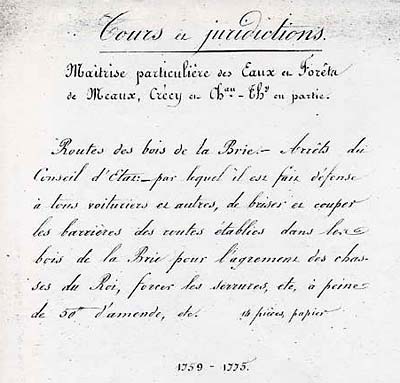 Cours et juridictions.
Maitrise particulière des Eaux et Forêts
de Meaux, Crécy et Chau-Thy en partie.
Routes des bois de la Brie. - Arrêts du
Conseil d'Etat - par lequel il est fait défense
à tous voituriers et autres, de briser et couper
les barrières des routes établies dans les
bois de la Brie pour l'agrément des chas-
ses du Roi, forcer les serrures, etc, à peine
de 50# d'amende, etc. 14 pièces, papier
1759 - 1775.